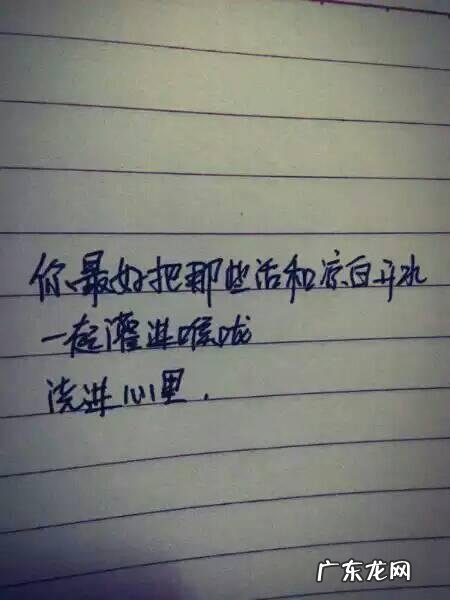 你最好把那些话和凉白开水
一起灌进喉咙
浇进心里.
广东龙网